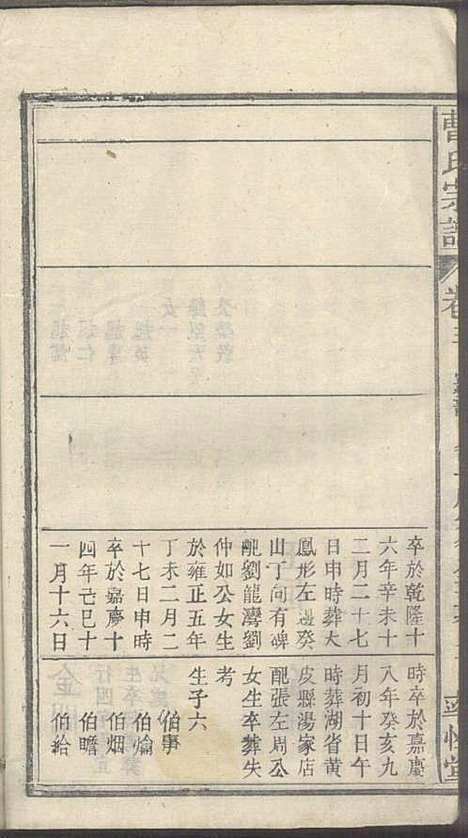 曹氏宗譜
卷
堂
卒於乾隆十
六年辛未十
二月二十七
日申時葬大
鳳形左邊癸
山丁向有碑
配劉龍灣劉
仲如公女生
於雍正五年
丁未二月二
十七日申時
卒於嘉慶十
四年己巳十
一月十六日
時卒於嘉慶
八年癸亥九
月初十日午
時葬湖省黃
皮縣湯家店
配張左周公
女生卒葬失
考
生子六
伯事
伯爚
伯烟
伯瞻
伯給